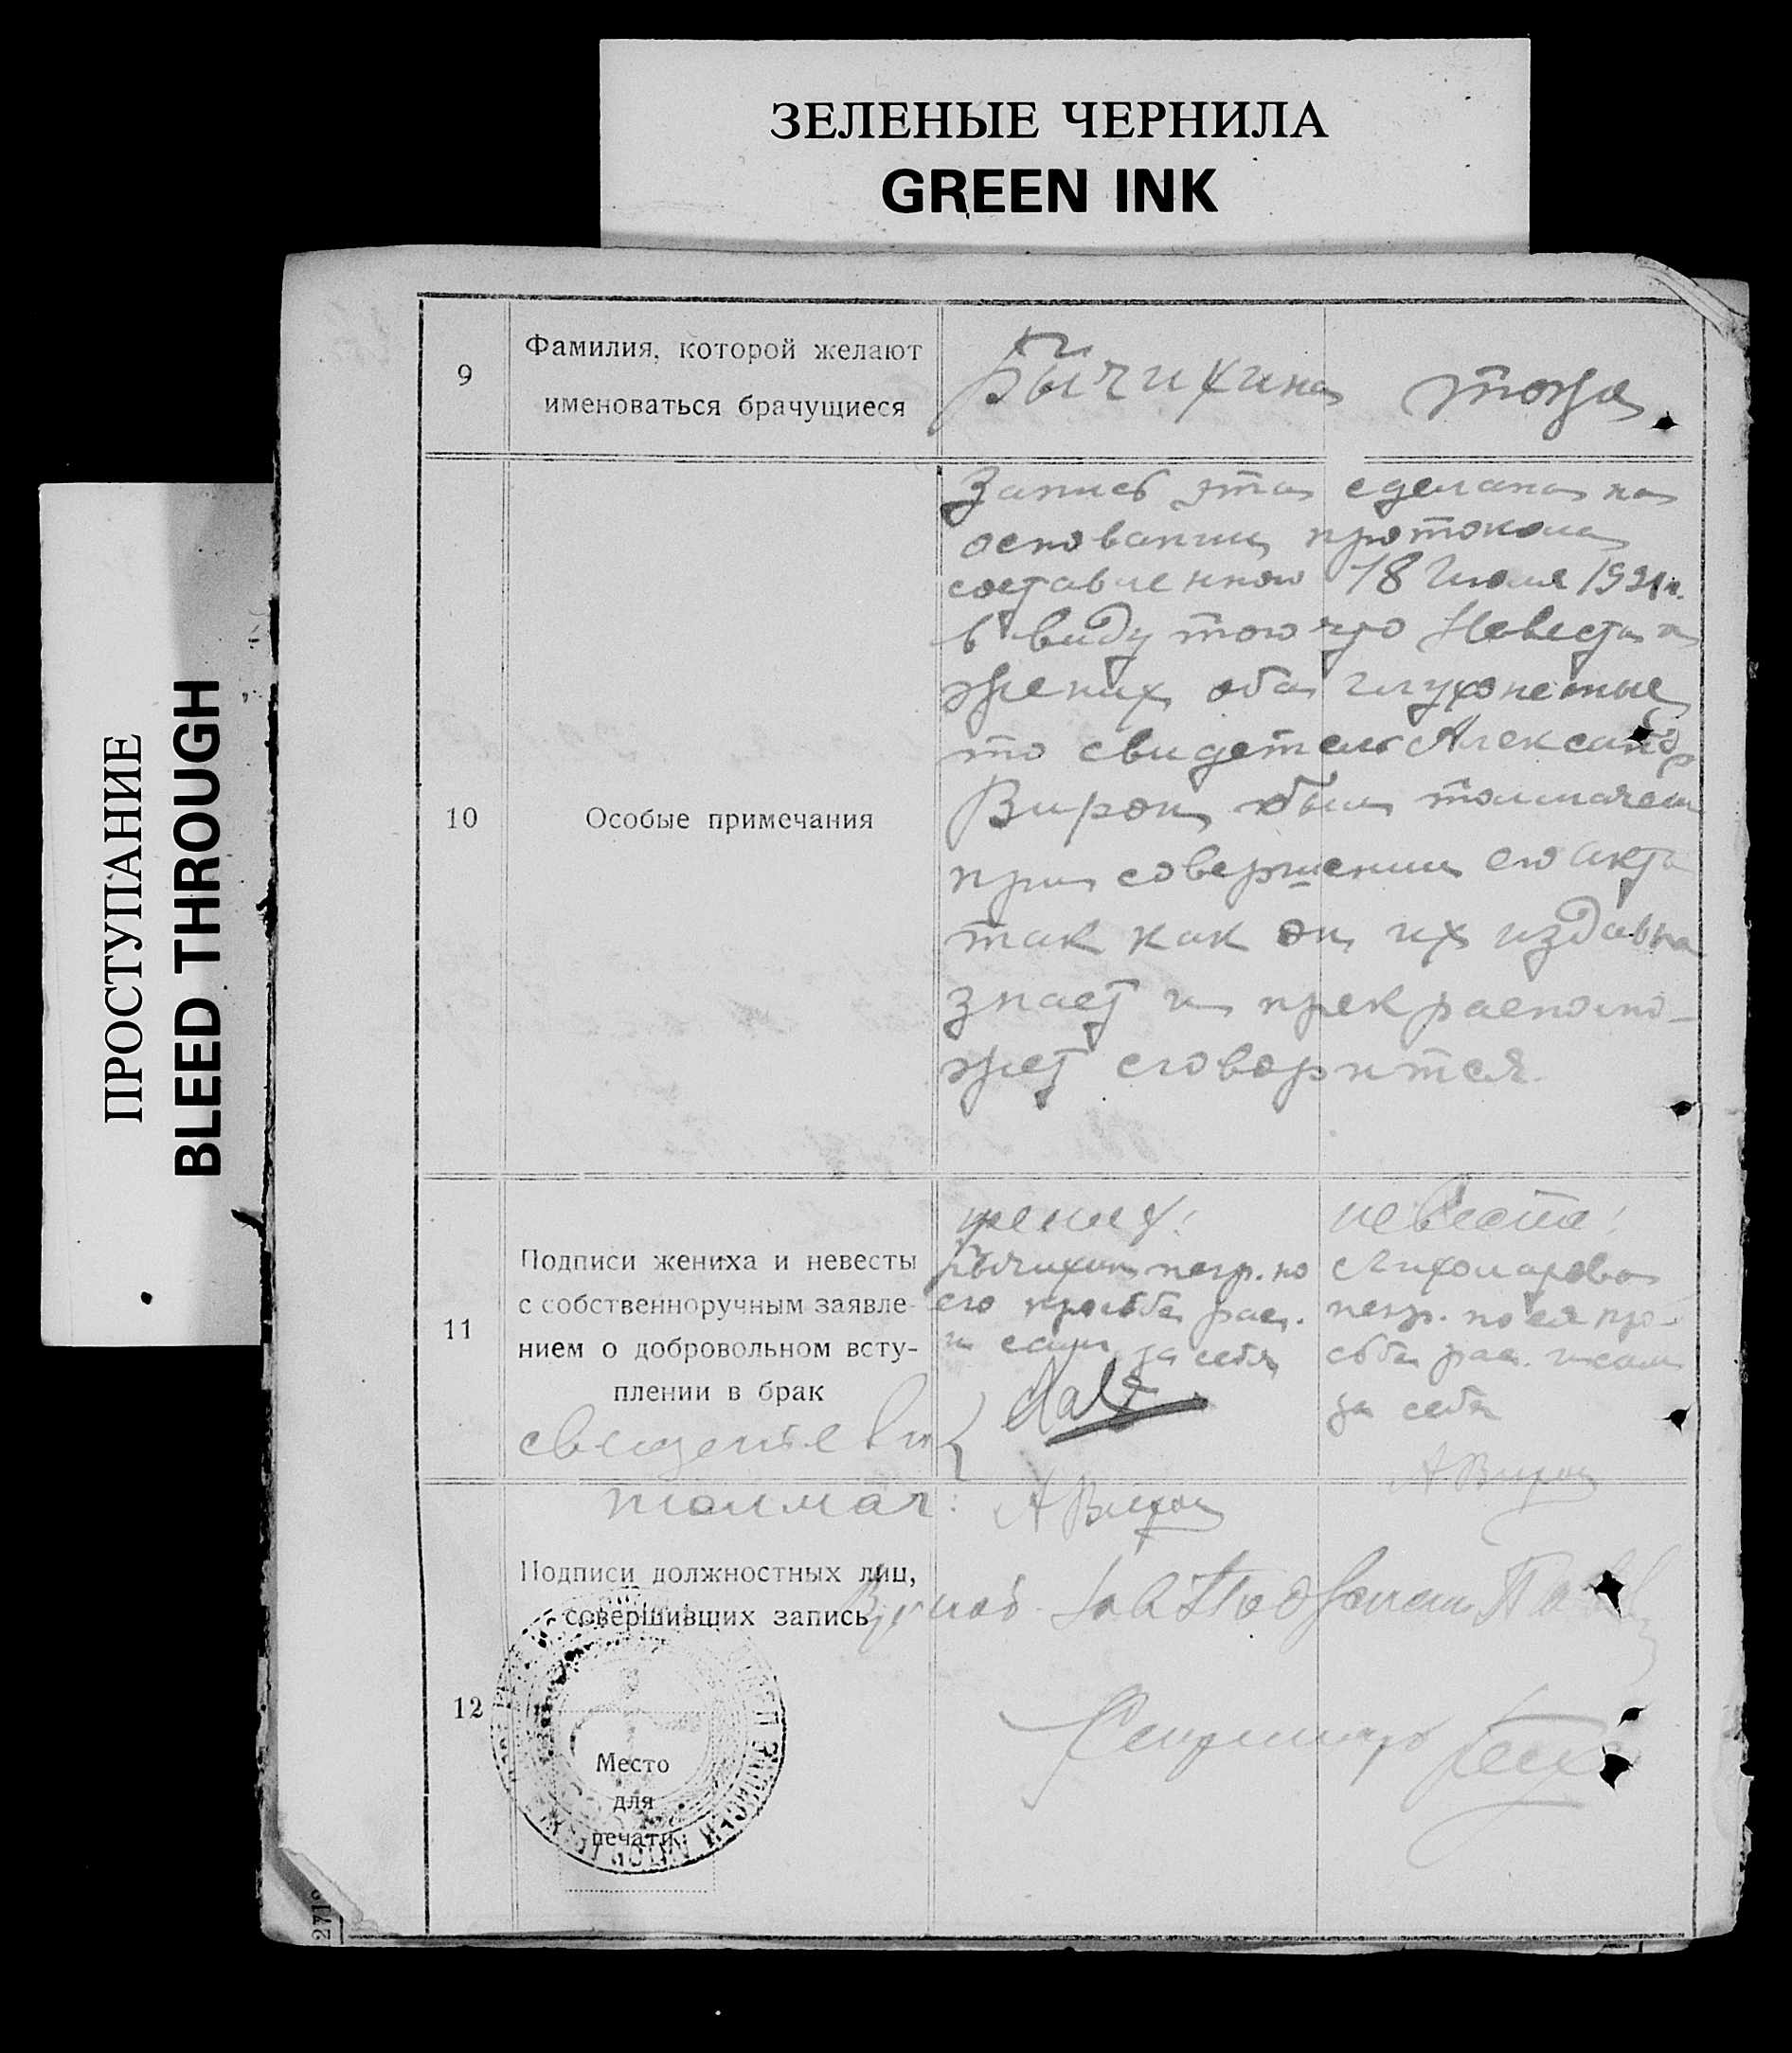 ЗЕЛЕНЫЕ ЧЕРНИЛА
GREEN INK
ПРОСТУПАНИЕ
BLEED THROUGH
9
Фамилия, которой желают
именоваться брачущиеся
Бычихина
тоже
10
Особые примечания
Запись эта сделана на
основании протокола
составленного 18 Июля 1921 г.
в виду того что Невеста и
жених оба глухонемые
то свидетель Александр
Вирон был толмачем
при совершении его акта
так как он их издавна
знает и прекрасно мо-
жет сговорится.
11
Подписи жениха и невесты
с собственноручным заявле-
нием о добровольном всту-
плении в брак
жених:
Бычихин негр. по
его просьбе рас.
и сам за себя
невеста:
негр. по ея про-
сьбе рас. и сам
за себя
А Вирон
свидетели
толмач: А Вирон
12
Подписи должностных лиц,
совершивших запись
Место
для
печати
Секретарь
2712